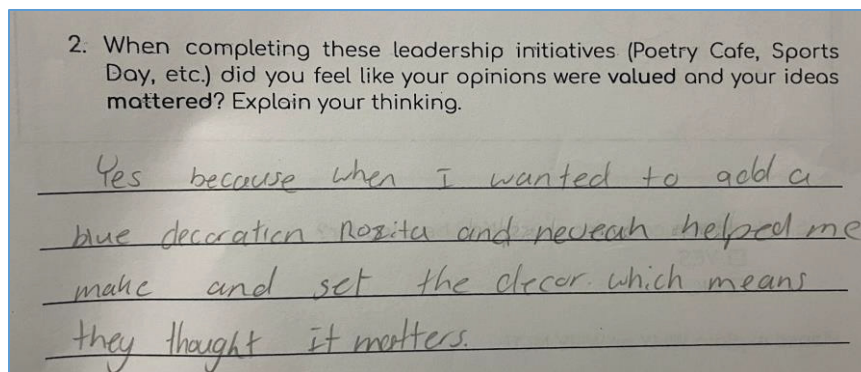 2. When completing these leadership initiatives (Poetry Cafe, Sports
Day, etc.) did you feel like your opinions were valued and your ideas
mattered? Explain your thinking.
Yes because when I wanted to add a
blue decoration Rozita and neveah helped me
make and set the decor. which means
they thought it matters.